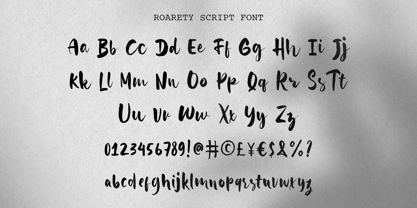 ROARETY SCRIPT FONT
Aa Bb Cc Dd Ee Ff Gg Hh Ii Jj
Kk Ll Mm Nn Oo Pp Qq Rr Ss Tt
Uu Vv Ww Xx Yy Zz
0123456789!@#©£¥€$&%?
abcdefghijklmnopqrstuvwxyz